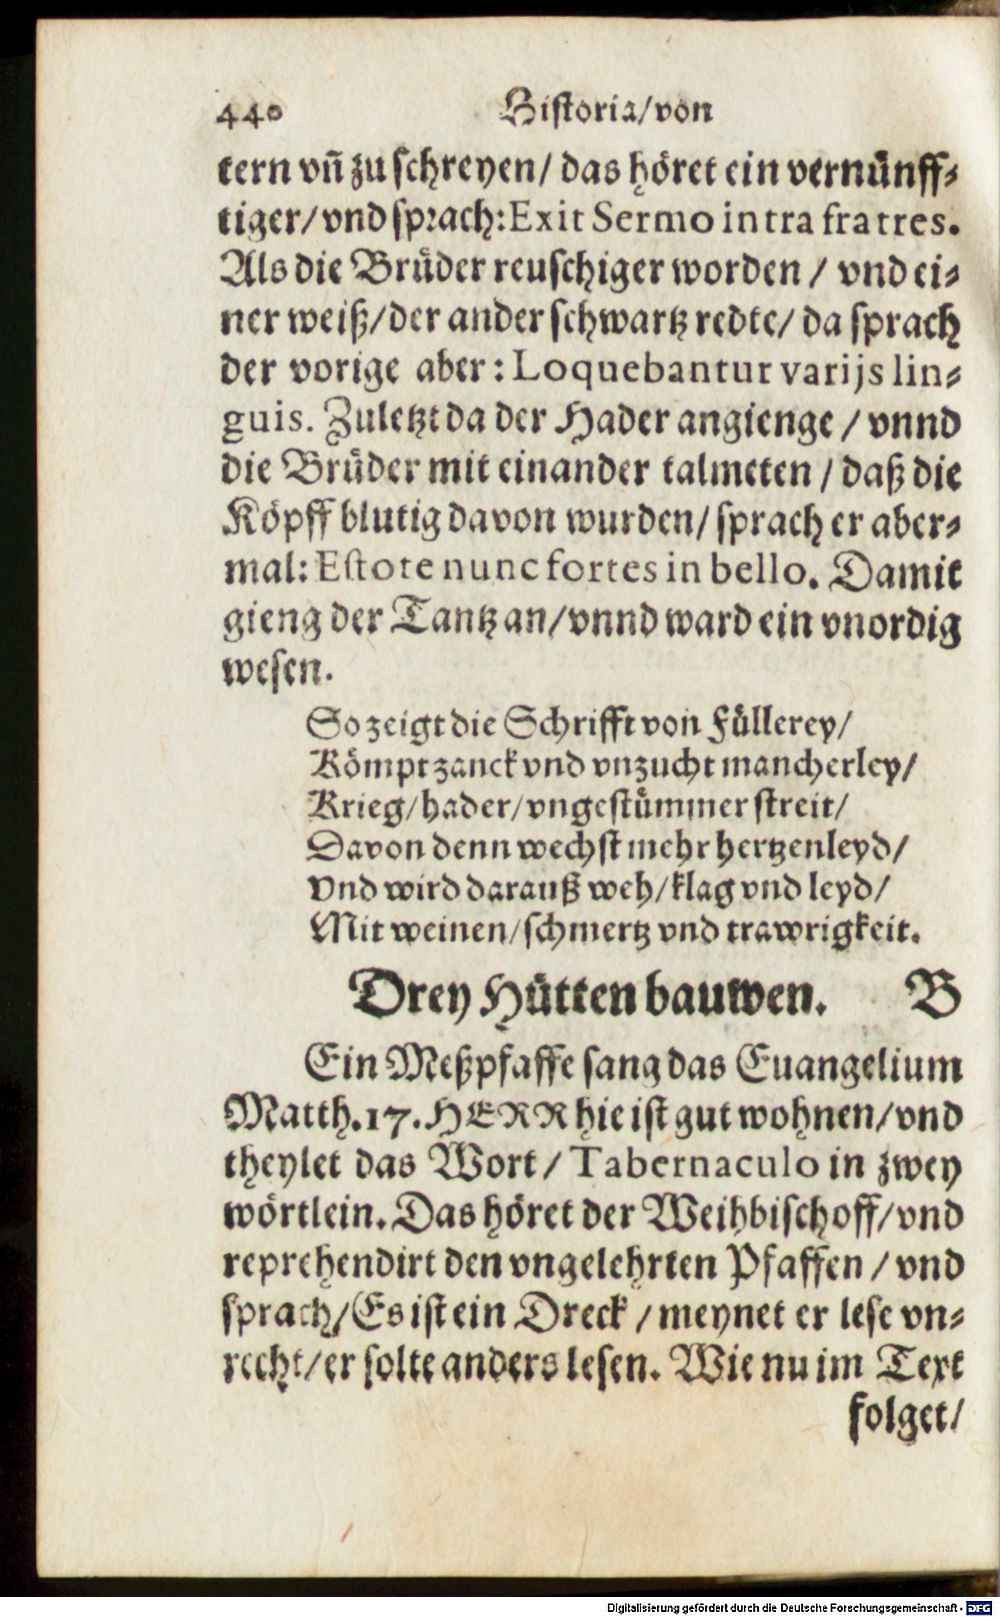 440 Historia/von
tern vñ zu schreyen/ das höret ein vernünff-
tiger/vnd sprach: Exit Sermo intra fratres.
Als die Brüder reuschiger worden / vnd ei-
ner weiß/der ander schwartz redte/ da sprach
der vorige aber: Loquebantur varijs lin-
guis. Zuletzt da der Hader angienge / vnnd
die Brüder mit einander talmeten / daß die
Köpff blutig davon wurden/ sprach er aber-
mal: Estote nunc fortes in bello. Damit
gieng der Tantz an/vnnd ward ein vnordig
wesen.
So zeigt die Schrifft von Füllerey/
Kömpt zanck vnd vnzucht mancherley/
Krieg/hader/vngestümmer streit/
Davon denn wechst mehr hertzenleyd/
Vnd wird darauß weh/klag vnd leyd/
Mit weinen/schmertz vnd trawrigkeit.
Drey Hütten bauwen. B
Ein Meßpfaffe sang das Euangelium
Matth.17. HERR hie ist gut wohnen/vnd
theylet das Wort/ Tabernaculo in zwey
wörtlein. Das höret der Weihbischoff/vnd
reprehendirt den vngelehrten Pfaffen / vnd
sprach/Es ist ein Dreck / meynet er lese vn-
recht/er solte anders lesen. Wie nu im Text
folget/
Digitalisierung gefördert durch die Deutsche Forschungsgemeinschaft - DFG